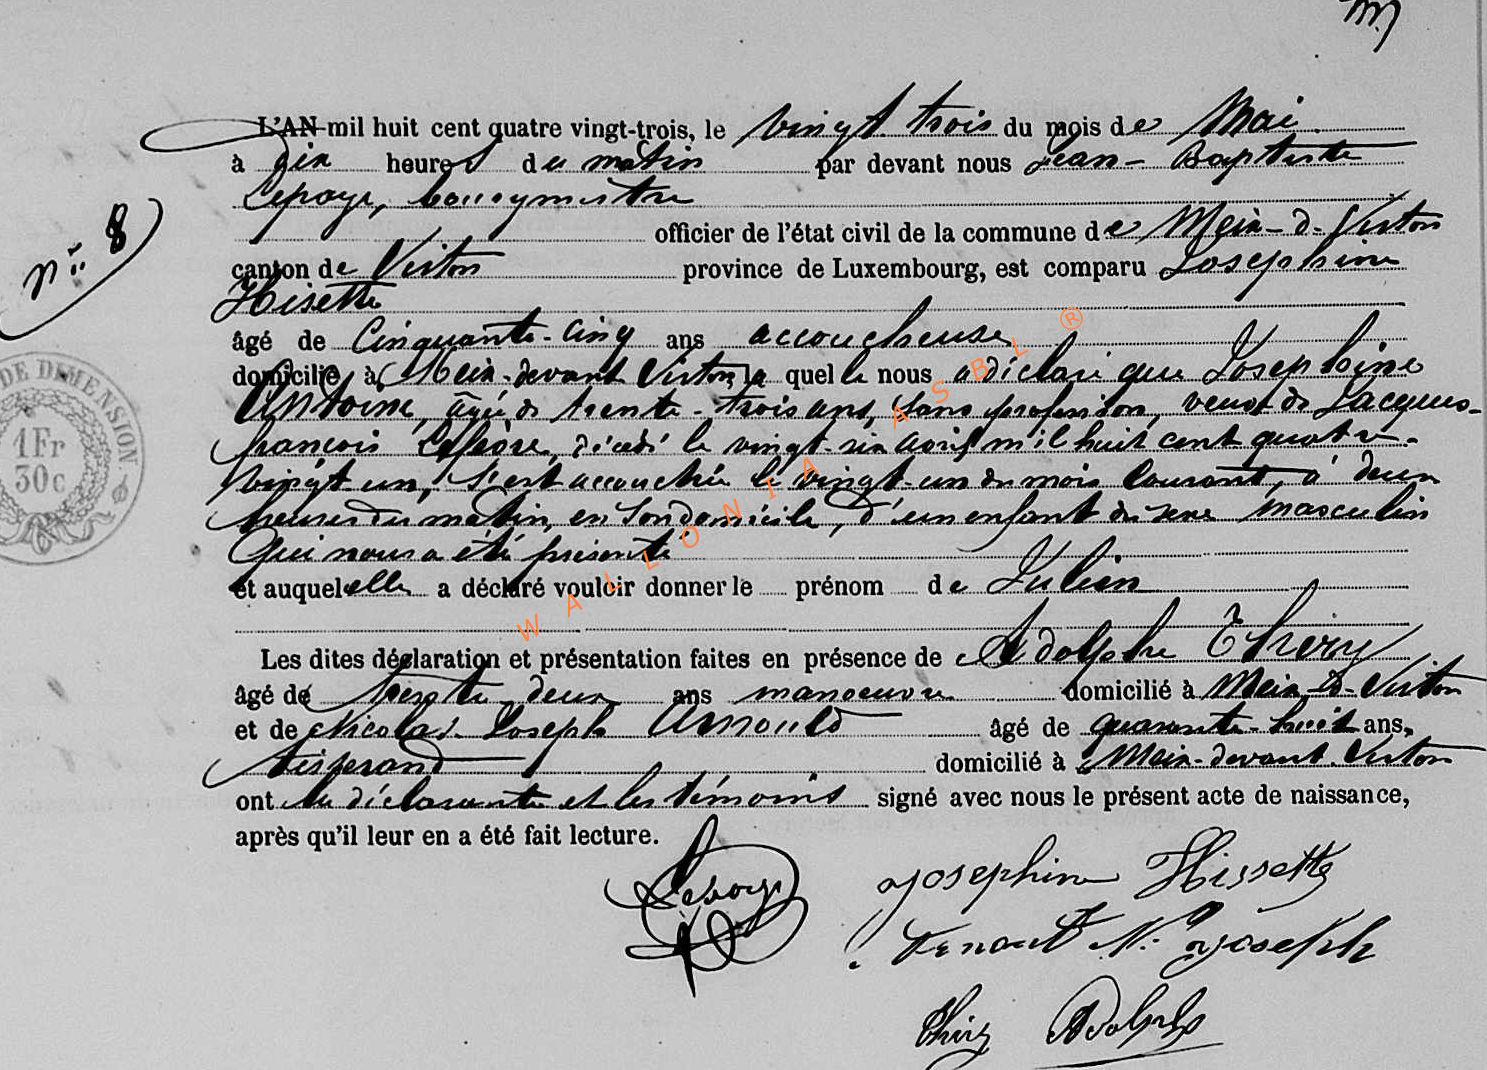 L'AN mil huit cent quatre vingt-trois, le vingt trois du mois de Mai
à dix heures du matin par devant nous Jean-Baptiste
Lepage, bourgmestre
officier de l'état civil de la commune de Meix-d-Virton
N° 8
canton de Virton province de Luxembourg, est comparu Josephine
Hisette
âgé de Cinquante-cinq ans accoucheuse
domicilié à Meix-devant Virton, la quelle nous a déclaré que Josephine
Antoine, âgée de trente-trois ans, sans profession, veuve de Jacques-
françois Lefèvre, décédé le vingt-six avril mil huit cent quatre-
vingt-un, s'est accouchée le vingt-un du mois courant, à deux
heures du matin, en son domicile, d'un enfant du sexe masculin
qui nous a été présenté
et auquel elle a déclaré vouloir donner le prénom de Julien
Les dites déclaration et présentation faites en présence de Adolphe Thiry
âgé de trente deux ans manoeuvre domicilié à Meix-d-Virton
et de Nicolas Joseph Arnould âgé de quarante-huit ans,
tisserand domicilié à Meix-devant-Virton
ont la déclarante et les témoins signé avec nous le présent acte de naissance,
après qu'il leur en a été fait lecture.
Lepage
josephine Hissette
N. joseph
Thiry Adolphe
DE DIMENSION.
1Fr
30c
WALLONIA ASBL ®